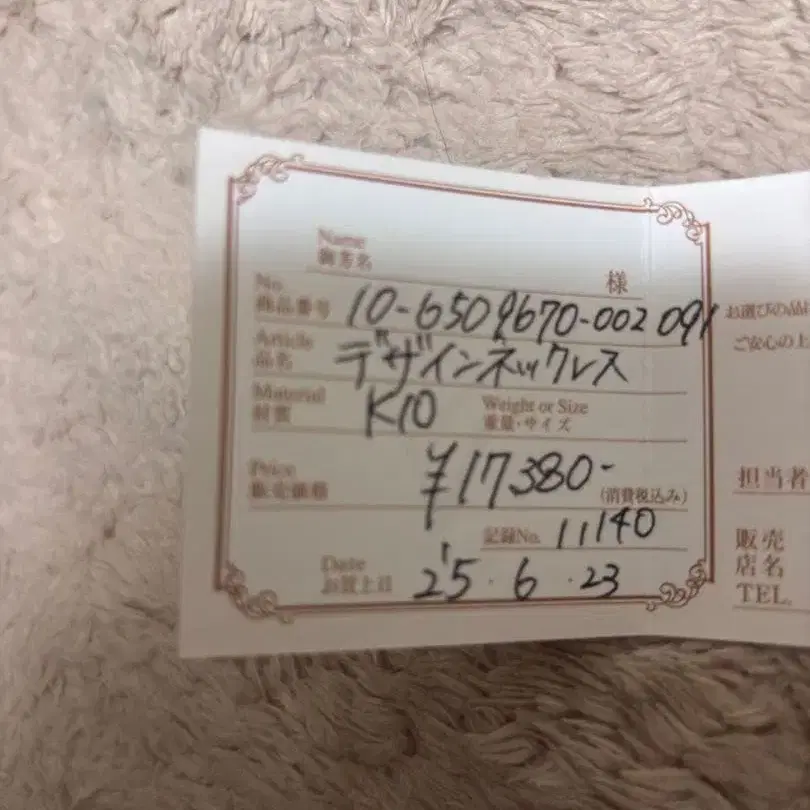 Name
御芳名 様
No. 商品番号 10-6509670-002 091
Article 品名 デザインネックレス
Material 材質 K10 Weight or Size 重量・サイズ
Price 販売価格 ¥17380- (消費税込み)
記録No. 11140
Date お買上日 '25.6.23
お選びの品
ご安心の上
担当者
販売
店名
TEL.